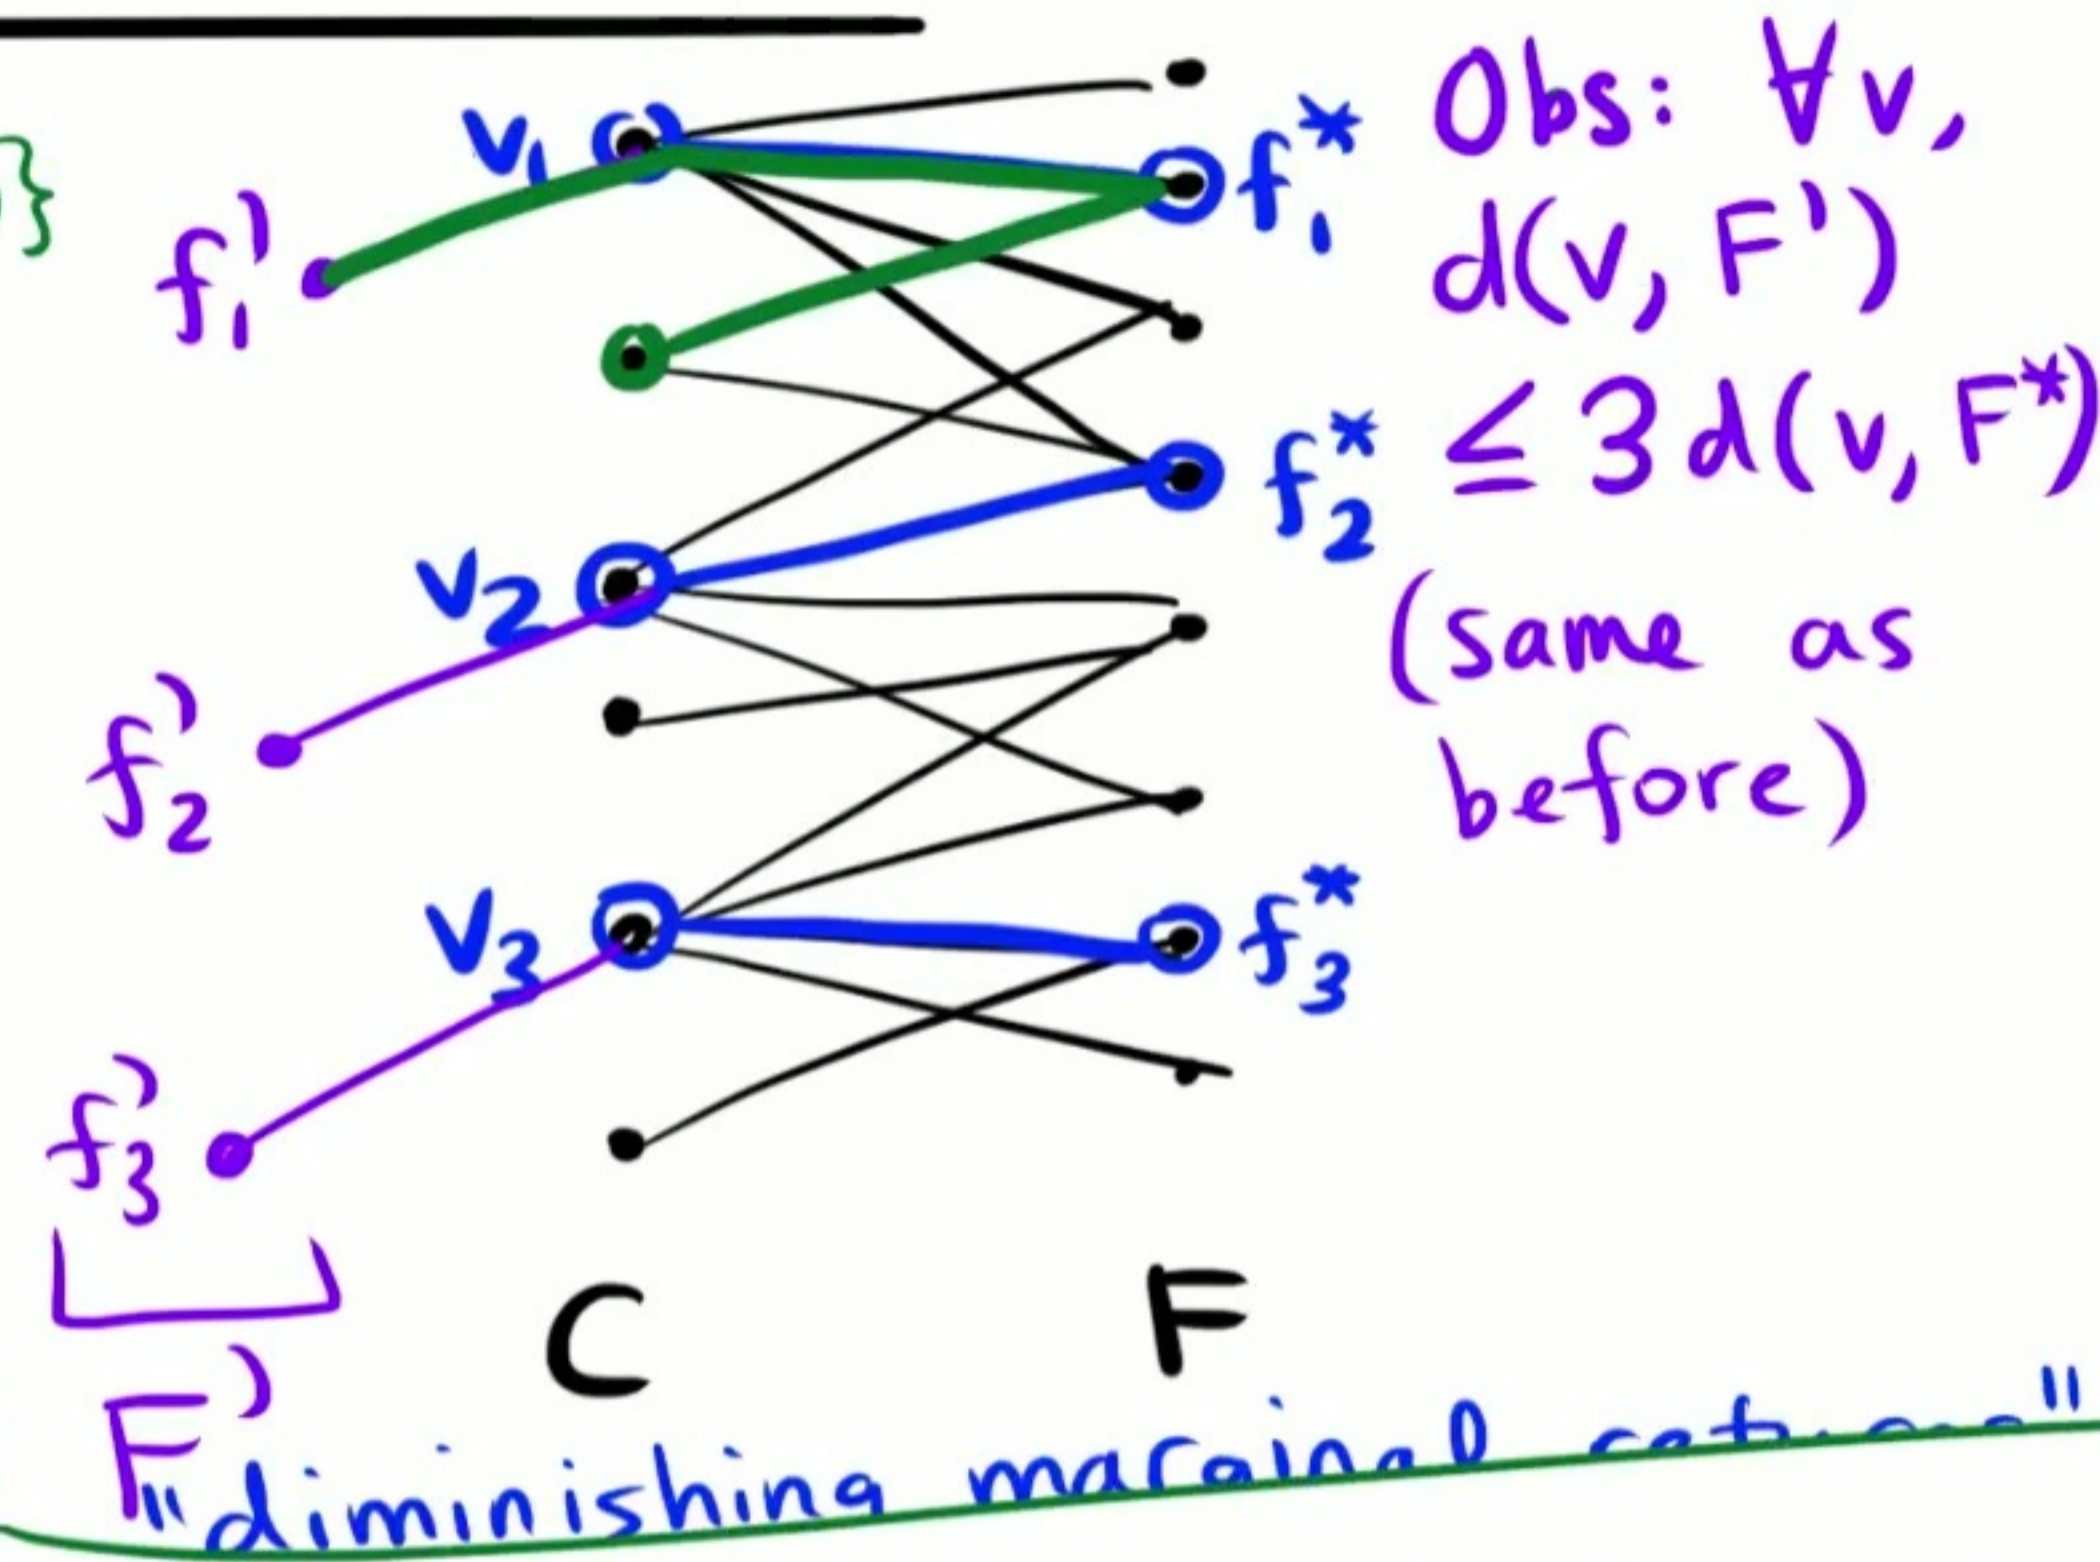 }
v₁
f₁'
f₁*
Obs: ∀v,
d(v, F')
≤ 3d(v, F*)
(same as
before)
f₂*
v₂
f₂'
v₃
f₃*
f₃'
C
F
F'
"diminishing marginal returns"